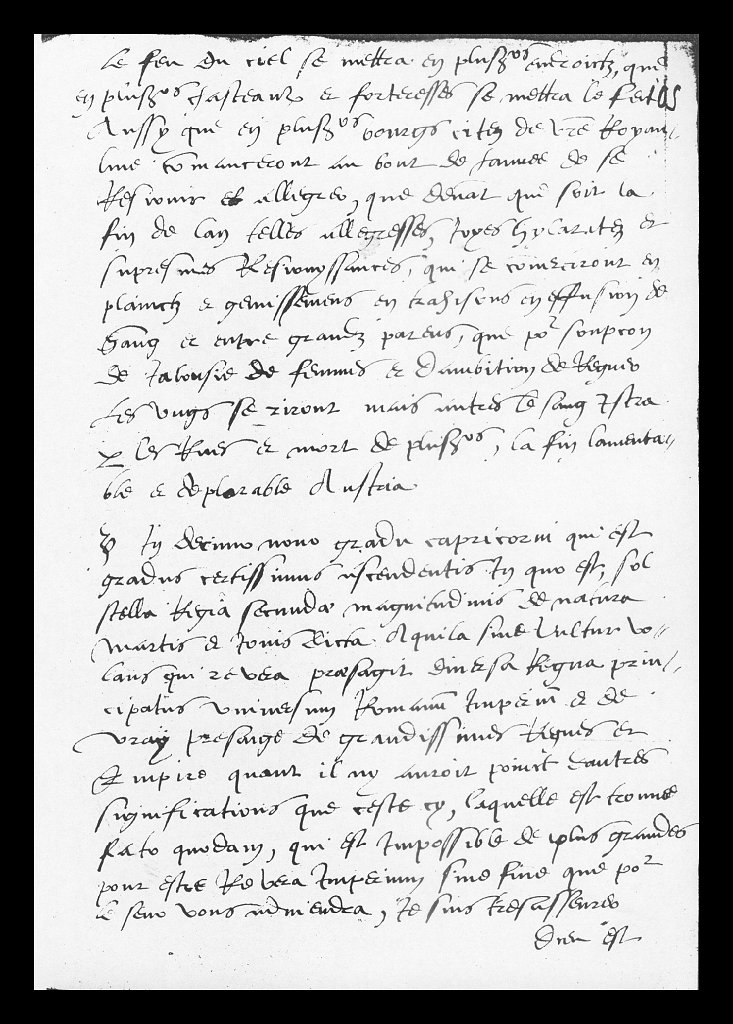 Le feu du ciel se mettra en plusrs endroictz, que
en plusrs chasteaux et forteresses se mettra le feu
Aussy que en plusrs bourgs citez de vre Royau-
lme comanceront au bout de lannee de se
Resiouir et allegrer, que devāt que soit la
fin de lan telles allegresses, Joyes hylaritez et
supresmes Resiouyssances, qui se convrtiront en
plainctz et gemissemens en trahisons en effusion de
sang et entre grandz parens, que por soupcon
de Jalousie de femmes et dambition de Regner
Les ungs se riront mais autres le sang Istra
p les Rues et mort de plusrs, la fin lamenta-
ble et deplorable Austria
In decimo nono gradu capricorni qui est
gradus certissimus ascendentis In quo est, sol
stella Regia secundæ magnitudinis de natura
martis et Jovis dicta Aquila sive Vultur vo-
lans qui re vera præsagit diversa Regna prin-
cipatus universum Romanum Imperiū et de
vray presaige de grandissimes Regnes et
Empire quant il ny auroit poinct dautres
significations que ceste cy, laquelle est trouvee
fato quodam, qui est Impossible de plus grandes
pour estre Re vera Imperium sine fine que por
le seur vous adviendra, Je suis tresasseure
Dieu est